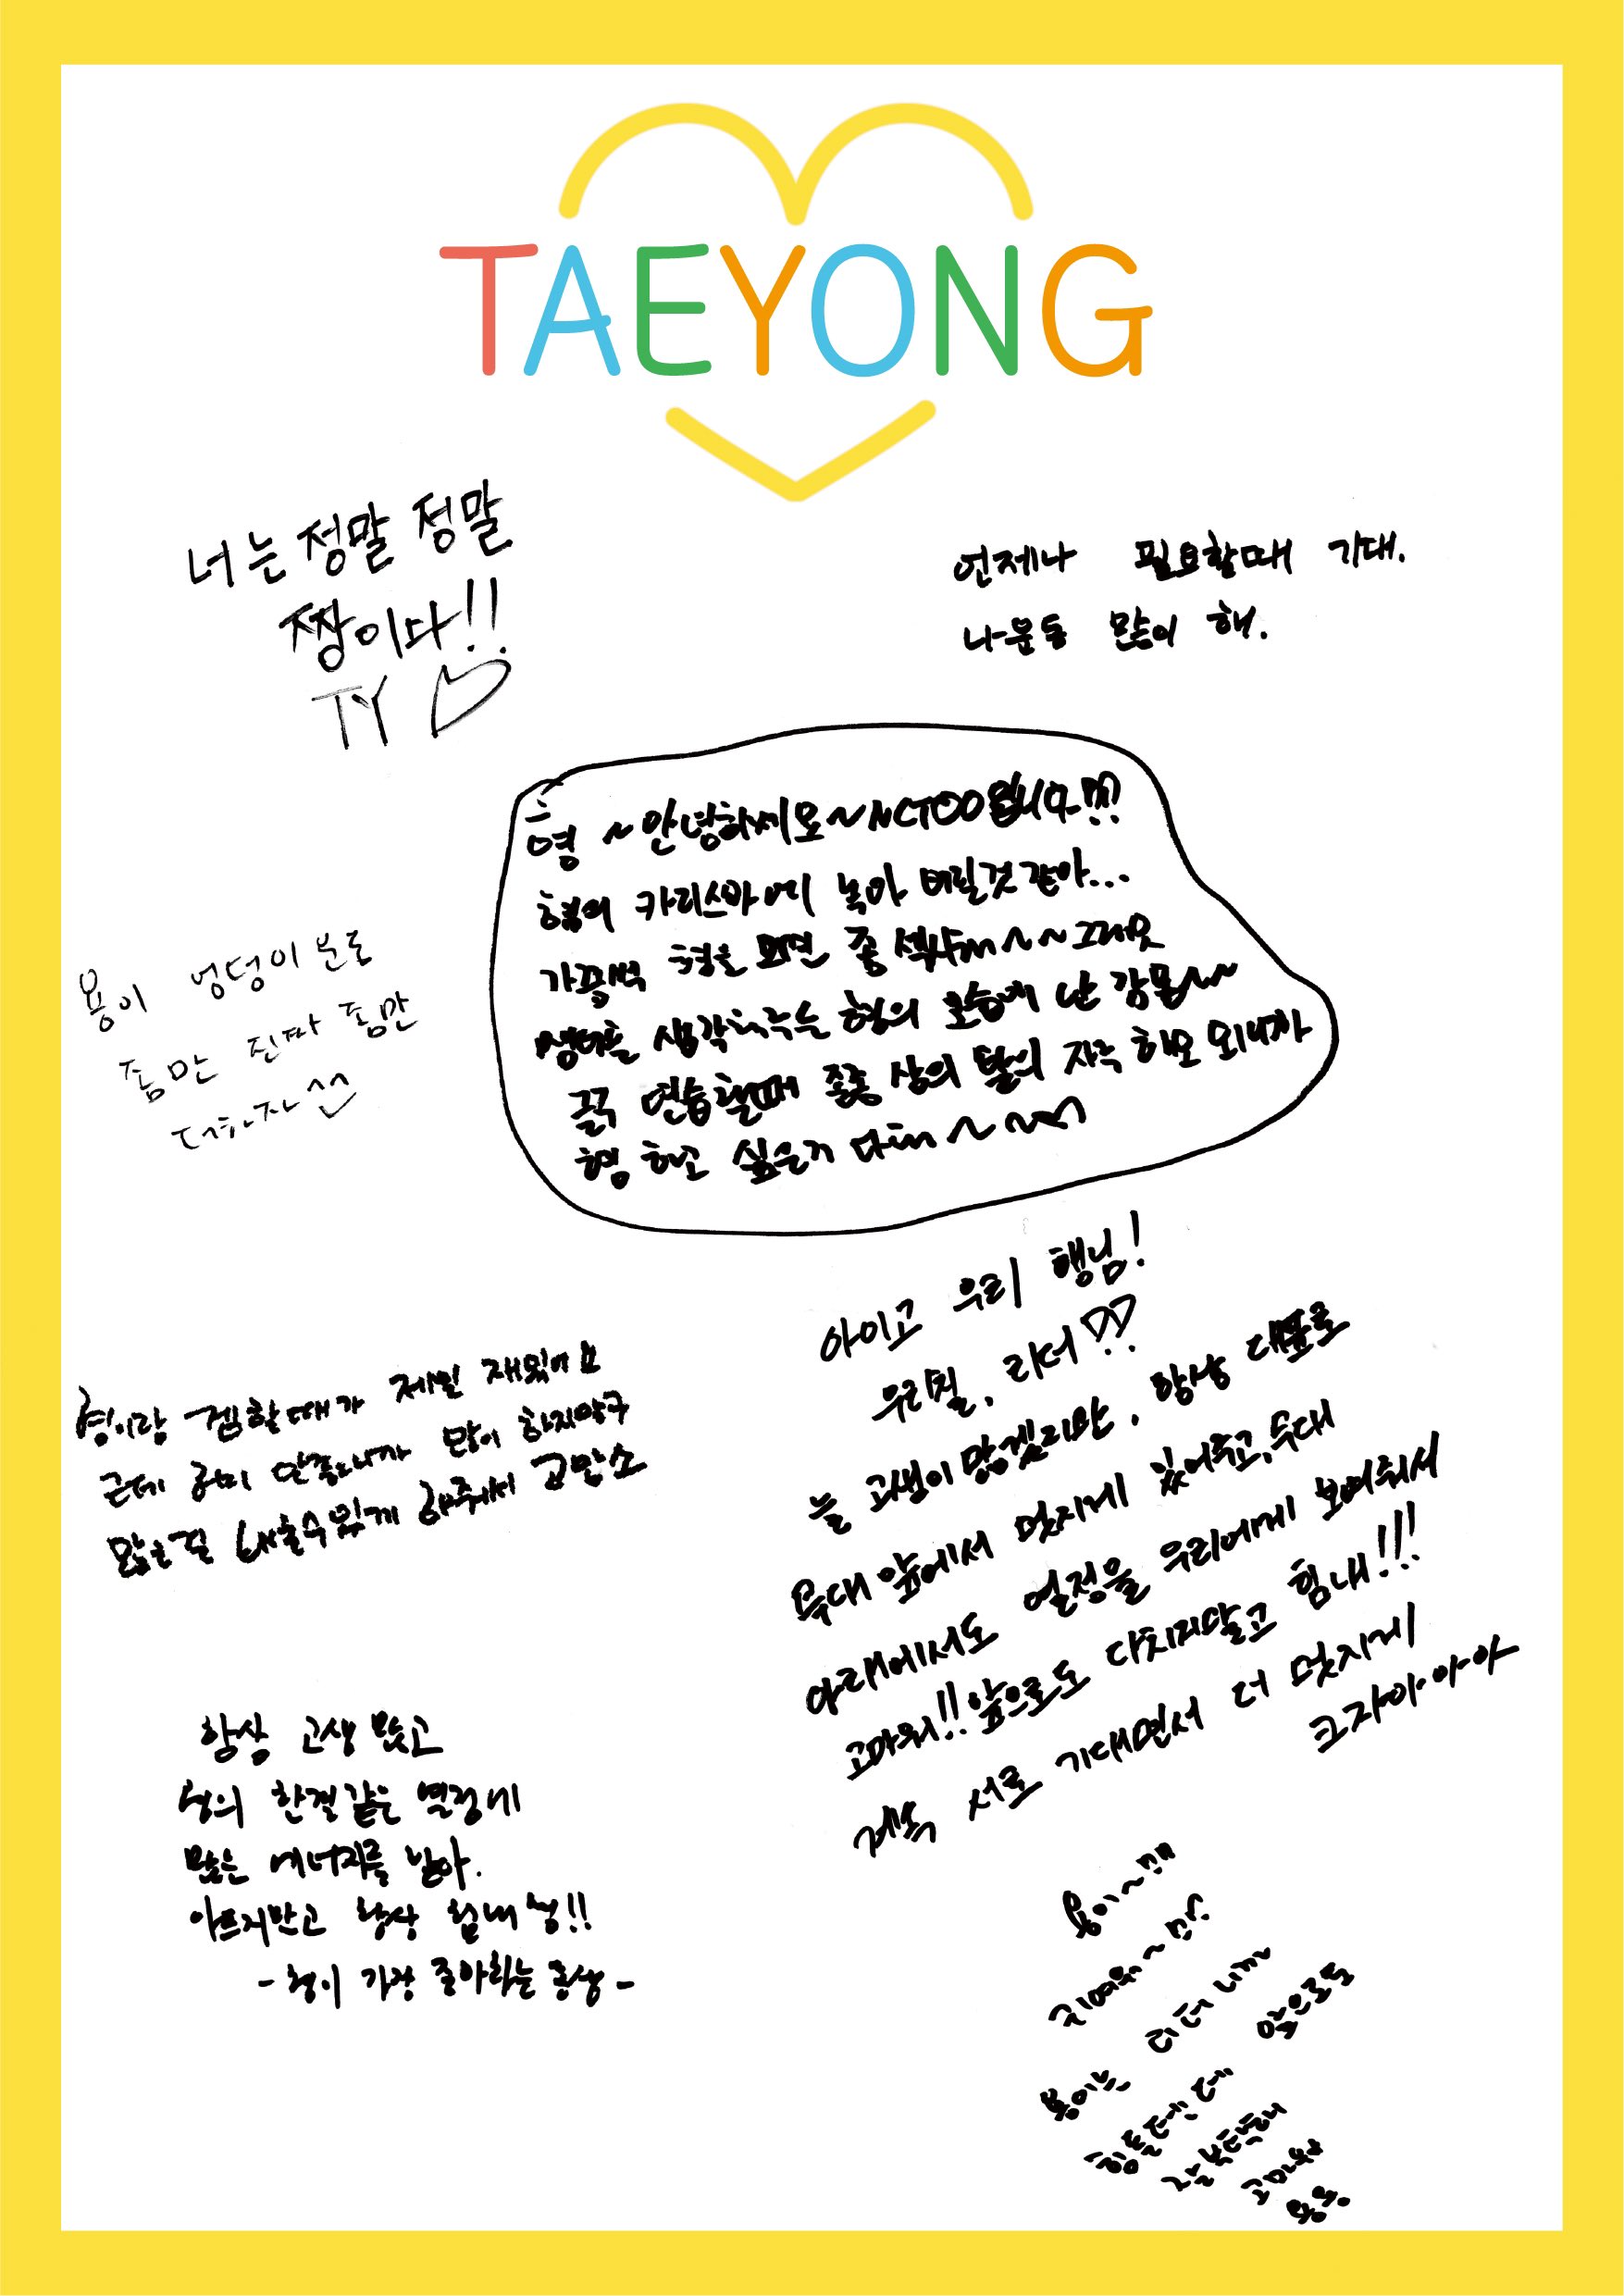 TAEYONG
너는 정말 정말
짱이다!!
TY
언제나 필요할때 기대.
나눈동 많이 해.
형 ~안녕하세요~NCT 입니다!!
형의 카리스마에 녹아 버릴것 같아...
가끔씩 형을 보면 좀
생각해주는 형의 모습에 난 감동~~
꼭 연습할때 종종 상의 탈의 자주 해
형 하고 싶은거 다해~~~
용이 엉덩이 분도
좀만 진짜 좀만
더하자^^
형이랑 겜할때가 제일 재밌어요
근데 안좋으니까 많이 하지말구
많은걸 배울수있게 해줘서 고맙소
아이고 우리 행님!
우리칠, 리더!!
늘 고생이 많겠지만, 항상 대표로
무대 앞에서 멋지게 있어주고, 무대
아래에서도 열정을 우리에게 보여줘서
고마워!! 앞으로도 다치지말고 힘내!!!
계속 서로 기대면서 더 멋지게
크자아아아
항상 고생 많고
형의 한결같은 열정에
많은 에너지를 받아.
아프지만고 항상 힘내 형!!
-형이 가장 좋아하는 동생-
용이~
귀여워~
용이는 리더니까
힘들텐데 앞으로도
잘 부탁해
고마워
용용.